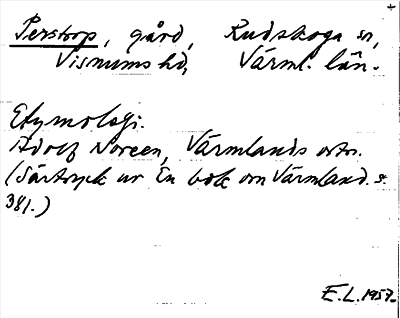 Perstorp, gård, Rudskoga sn,
Visnums hd, Värml. län.
Etymologi.
Adolf Noreen, Värmlands ortn.
(Särtryck ur En bok om Värmland. s.
381.)
E.L. 1957.